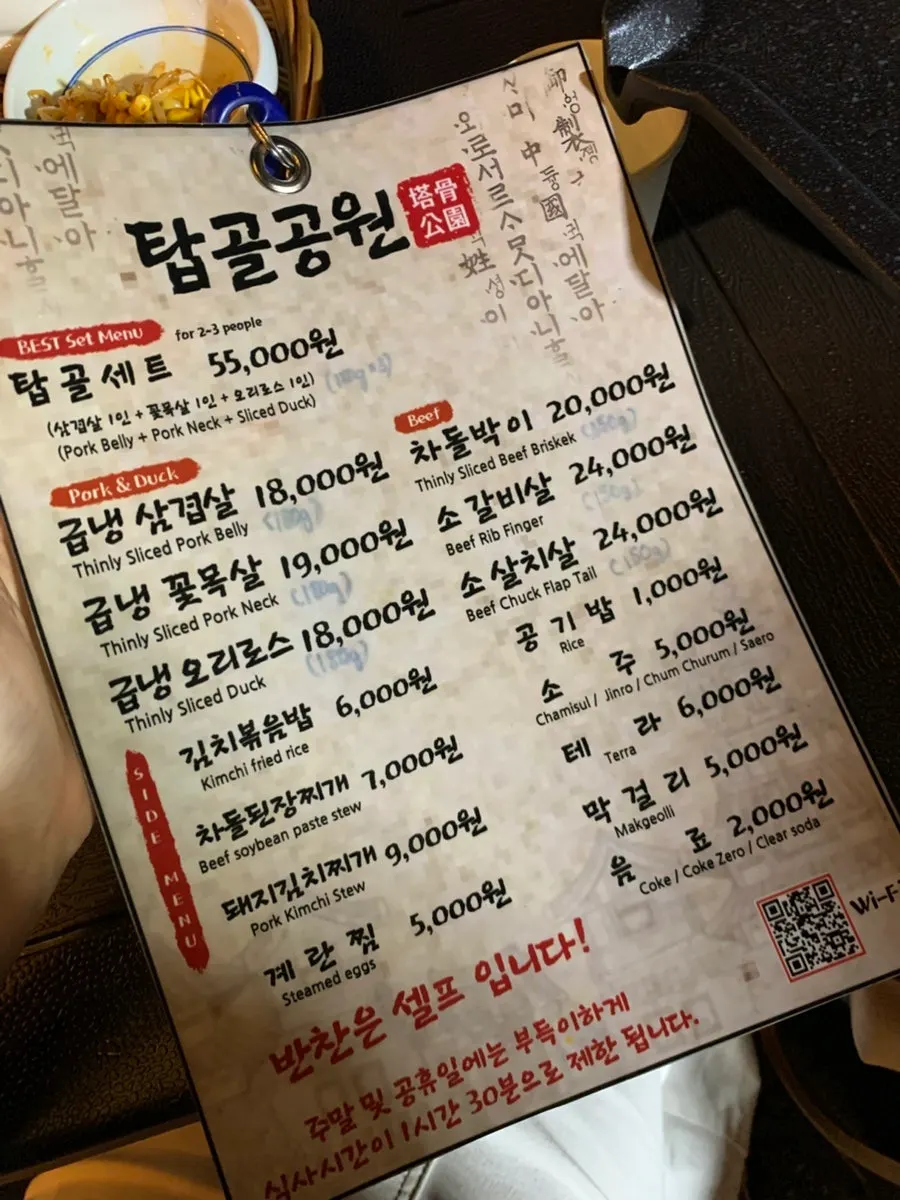 탑골공원
塔骨
公園
御영製젱
中듕國귁에달아
오로서르스뭇디아니
姓셩이
귁에달아
디아니
BEST Set Menu for 2-3 people
탑골세트 55,000원
(삼겹살 1인 + 꽃목살 1인 + 오리로스 1인)
(Pork Belly + Pork Neck + Sliced Duck)
Pork & Duck
급냉 삼겹살 18,000원
Thinly Sliced Pork Belly (180g)
급냉 꽃목살 19,000원
Thinly Sliced Pork Neck (180g)
급냉 오리로스 18,000원
Thinly Sliced Duck (180g)
SIDE MENU
김치볶음밥 6,000원
Kimchi fried rice
차돌된장찌개 7,000원
Beef soybean paste stew
돼지김치찌개 9,000원
Pork Kimchi Stew
계란찜 5,000원
Steamed eggs
Beef
차돌박이 20,000원
Thinly Sliced Beef Briskek (150g)
소갈비살 24,000원
Beef Rib Finger (150g)
소살치살 24,000원
Beef Chuck Flap Tail (150g)
공기밥 1,000원
Rice
소주 5,000원
Chamisul / Jinro / Chum Churum / Saero
테라 6,000원
Terra
막걸리 5,000원
Makgeolli
음료 2,000원
Coke / Coke Zero / Clear soda
Wi-Fi
반찬은 셀프 입니다!
주말 및 공휴일에는 부득이하게
식사시간이 1시간 30분으로 제한 됩니다.